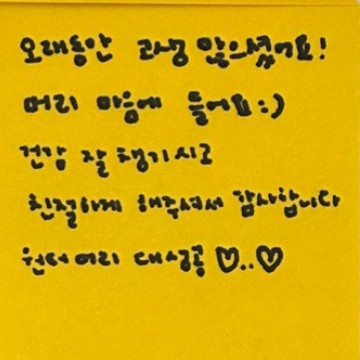 오래동안 고생 많으셨어요!
머리 마음에 들어요:)
건강 잘 챙기시고
친절하게 해주셔서 감사합니다
원터머리 대성공 ♡..♡